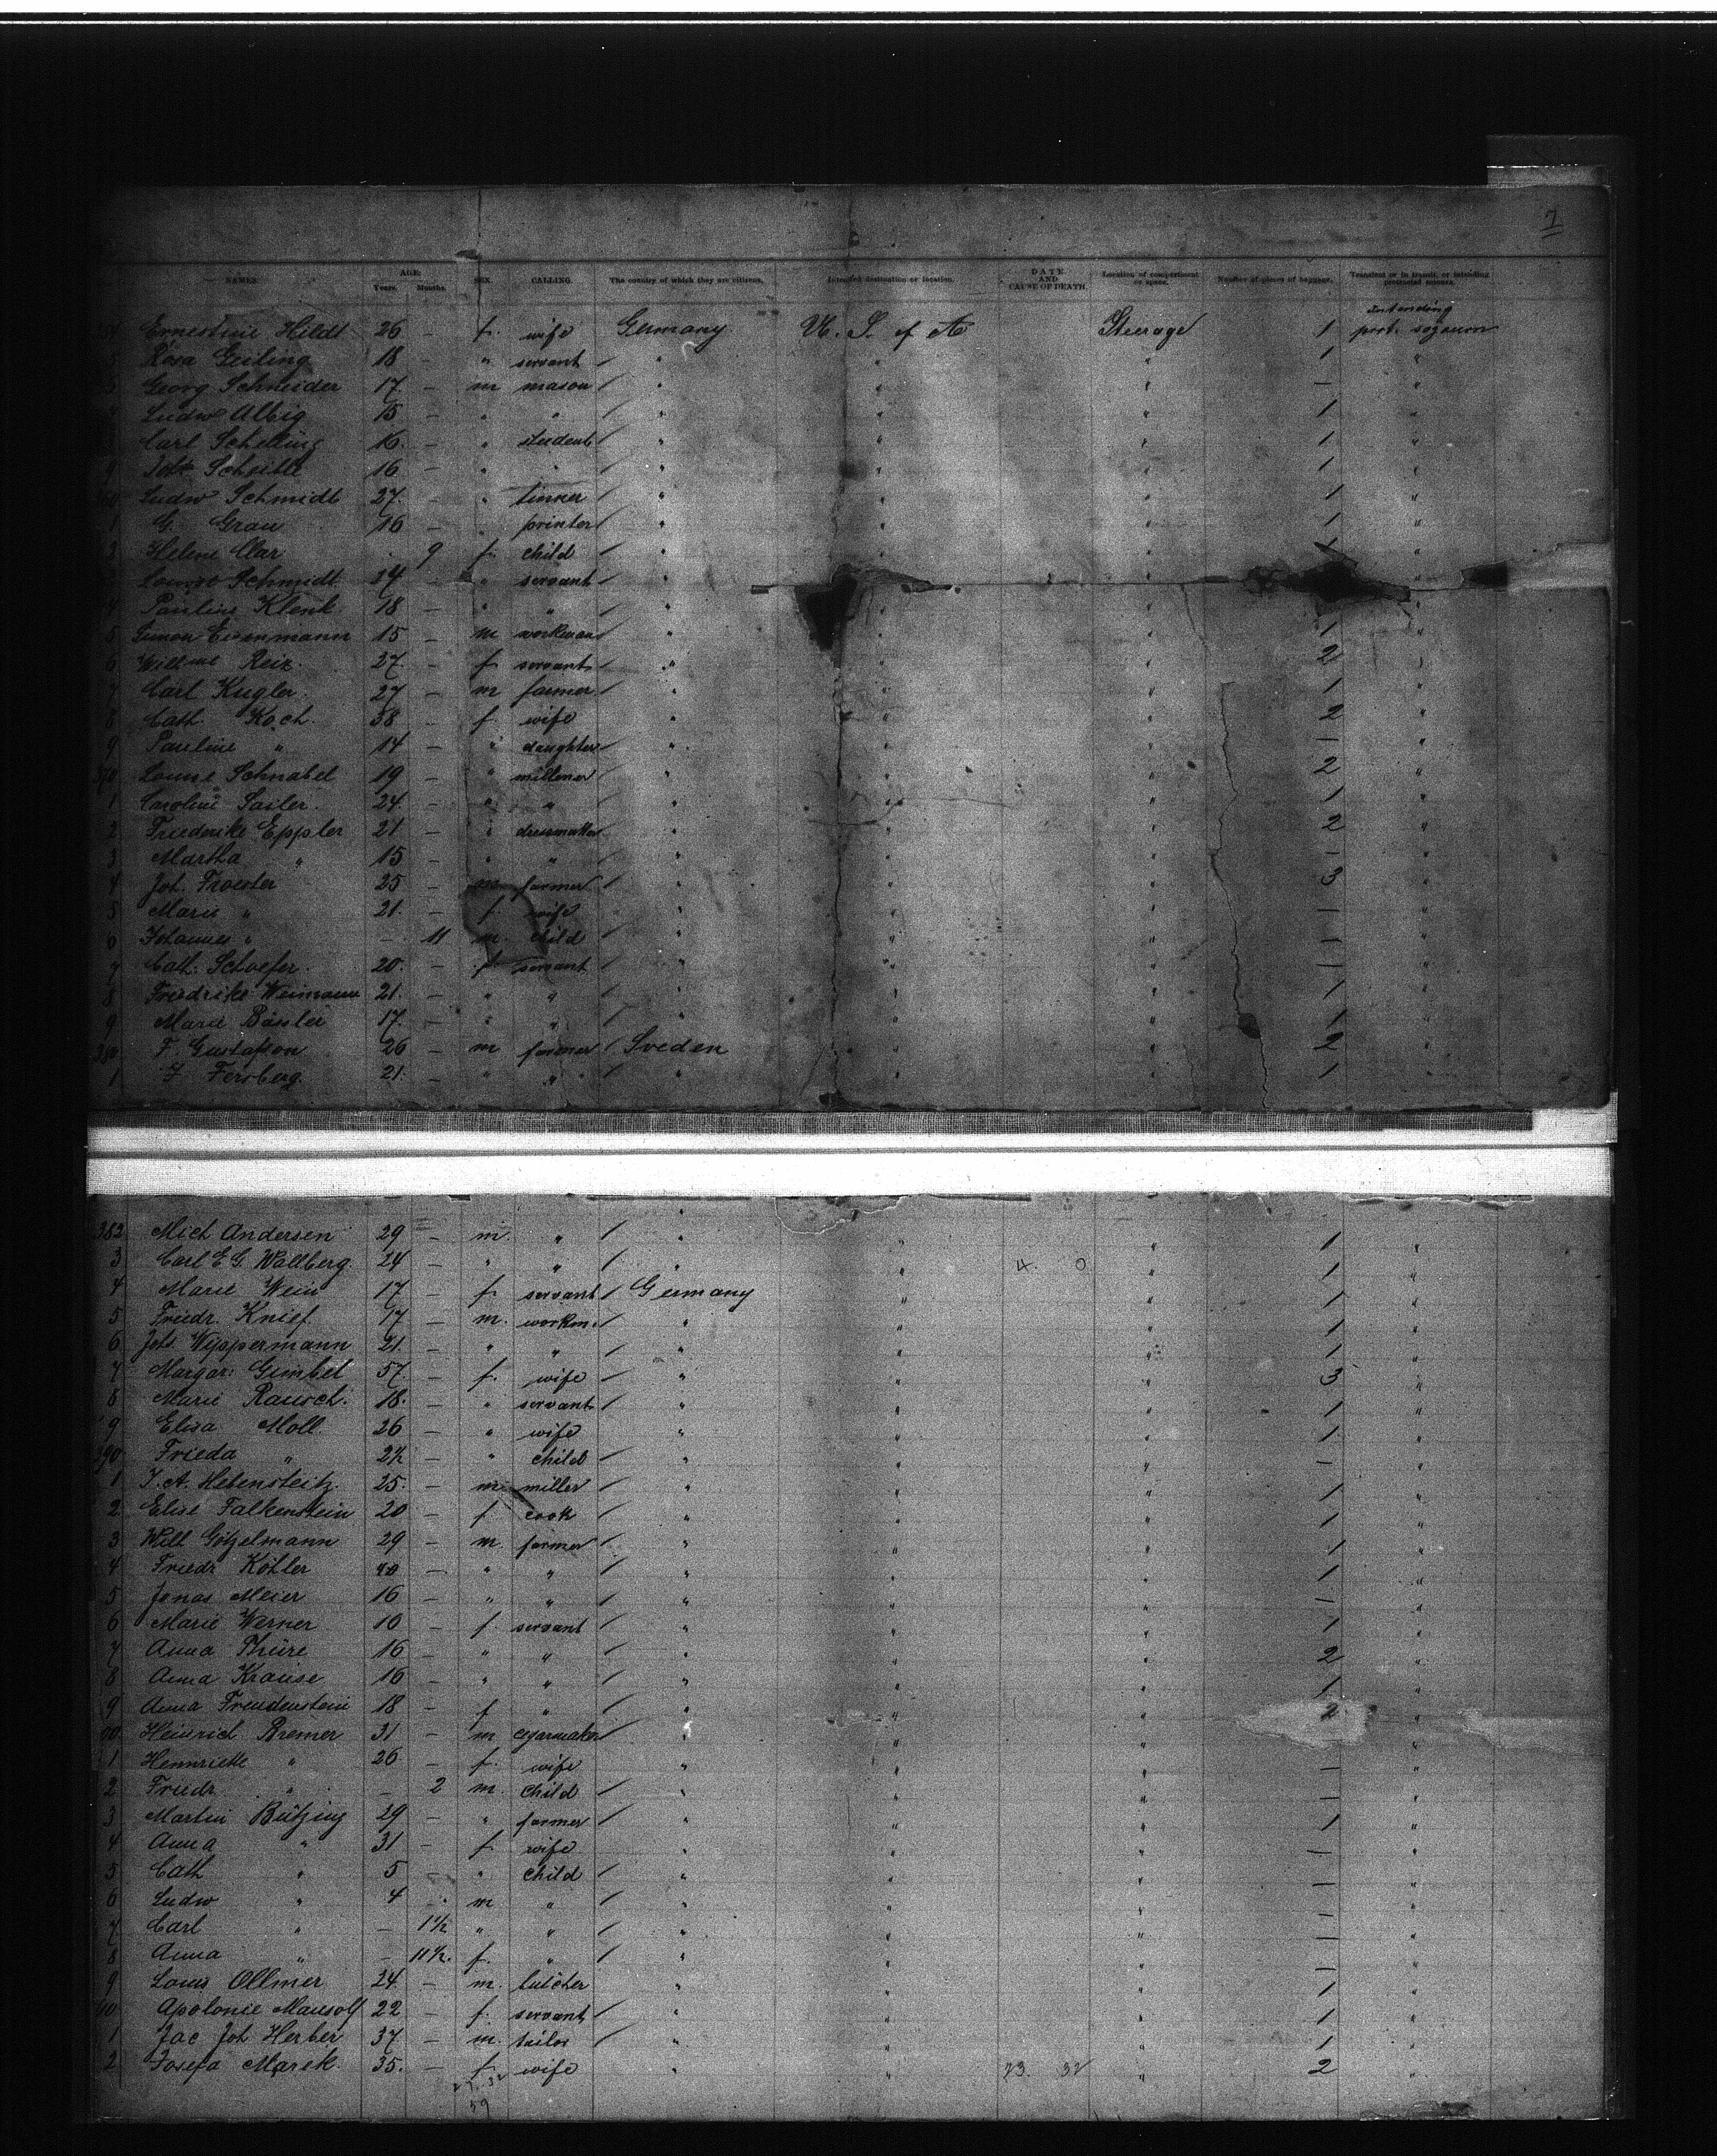 7
NAMES. AGE. Years. Months. SEX. CALLING. The country of which they are citizens. Intended destination or location. DATE AND CAUSE OF DEATH. Location of compartment or space. Number of pieces of baggage. Transient or in transit, or intending protracted sojourn.
Intending
Ernestine Hildt 26 — f. wife Germany U. S. of A Steerage 1 prot. sojourn
Rosa Geiling 18 — " servant / " " " 1 "
Georg Schneider 17 — m mason / " " " — "
Ludw Albig 15 — " " / " " " 1 "
Carl Schelling 16. — " student / " " " 1 "
9 Schaible 16 — " " / " " " 1 "
360 Ludw Schmidt 27. — " tinner / " " " 1 "
1 G. Grau 16 — " printer / " " " 1 "
2 Helene Clar . 9 f. child / " " " "
Schmidt 34 — " servant / "
4 Pauline Klenk 18 — " " / " " " "
5 Simon Eisenmann 15 — m workman / " " " 1 "
6 Reiz. 27. — f. servant / " " " 2 "
7 Carl Kugler. 27 — m farmer / " " " 1 "
8 Cath. Koch. 38 — f. wife " " " 2 "
9 Pauline " 14 — " daughter / " " " — "
370 Louise Schnabel 19 — " milliner / " " " 2 "
1 Caroline Sailer. 24. — " " / " " " 1 "
2 Friederike Eppler 21 — " dressmaker / " " " 2 "
3 Martha " 15 — " " / " " " — "
4 Joh. Froester 25 — m farmer / " " " 3 "
5 Marie " 21. — f. wife " " " — "
6 Johannes " — 11 m. child / " " " — "
7 Cath. Schaefer. 20. — f. servant / " " " — "
8 Friedrike Weimann 21. — " " / " " " 1 "
9 Marie Bässler 17. — " " / " " " 1 "
380 F. Gustafson 26 — m farmer / Sveden " " 2 "
1 Fersberg. 21. — " " / " " " 1 "
382 Mich Andersen 29 — m. " / " " " 1 "
3 Carl E G. Wallberg. 24 — " " / " " 4. 0 " 1 "
4 Marie Wein 17 — f. servant / Germany " " 1 "
5 Friedr. Knief 17 — m. workm. / " " " 1 "
6 Joh. Wippermann 21. — " " / " " " 1 "
7 Margar: Gimbel 57. — f. wife / " " " 3 "
8 Marie Rausch. 18. — " servant / " " " 1 "
9 Elisa Moll. 26 — " wife " " " 1 "
390 Frieda " 2½ — " child / " " " — "
1 J. A. Hebensteitz. 25. — m. miller / " " " 1 "
2 Elise Falkenstein 20 — f cook / " " " 1 "
3 Will Götzelmann 29 — m. farmer / " " " 1 "
4 Friedr Köhler 40 — " " / " " " 1 "
5 Jonas Meier 16 — " " / " " " — "
6 Marie Werner 10 — f. servant / " " " 1 "
7 Anna Thüre 16 — " " / " " " 2 "
8 Anna Krause 16 — " " / " " " 1 "
9 Anna Freudenstein 18 — f " / " " " 2 "
00 Heinrich Bremer 31 — m cigarmaker / " " " "
1 Henriette " 26 — f. wife " " " — "
2 Friedr " — 2 m. child / " " " — "
3 Martin 29 — " farmer / " " " 1 "
4 Anna " 31 — f. wife " " " — "
5 Cath " 5 — " child / " " " — "
6 Ludw " 4 — m " / " " " — "
7 Carl " — 1½ " " / " " " — "
8 Anna " — 11½. f. " / " " " — "
9 Louis Ollmer 24 — m. butcher " " " 1 "
10 Apolonie Mausolf 22 — f. servant / " " " 1 "
1 Jac Joh Herber 37 — m. tailor / " " " 1 "
2 Josefa Marek. 35. — f. wife " " 23. 32 " 2 "
27. 32
59